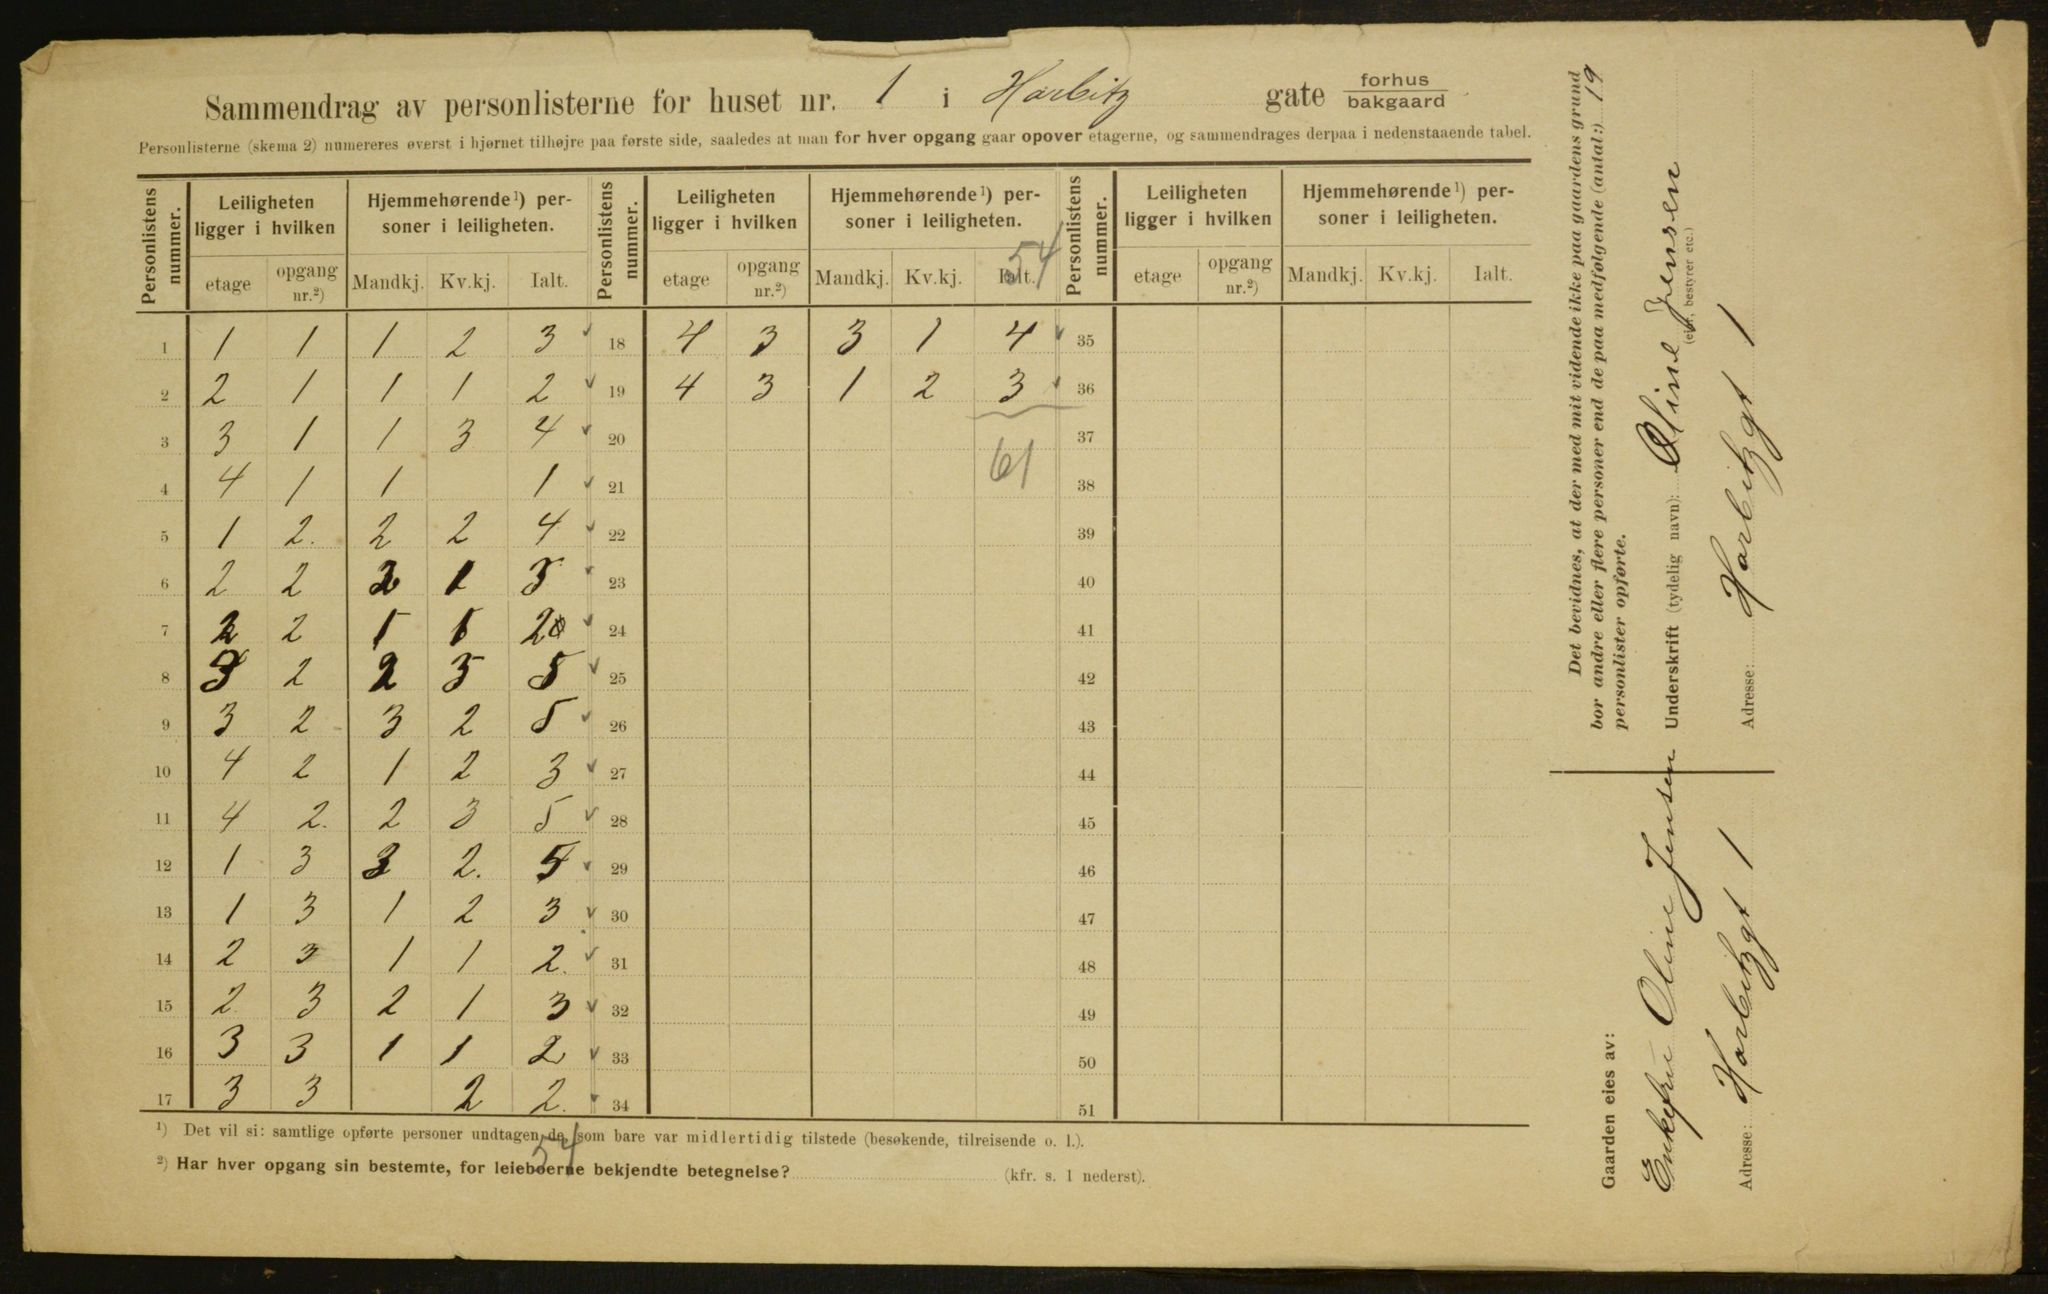 Sammendrag av personlisterne for huset nr. 1 i Harbitz gate forhus bakgaard
Personlisterne (skema 2) numereres øverst i hjørnet tilhøjre paa første side, saaledes at man for hver opgang gaar opover etagerne, og sammendrages derpaa i nedenstaaende tabel.
Personlistens nummer. Leiligheten ligger i hvilken Hjemmehørende 1) personer i leiligheten. Personlistens nummer. Leiligheten ligger i hvilken Hjemmehørende 1) personer i leiligheten. Personlistens nummer. Leiligheten ligger i hvilken Hjemmehørende 1) personer i leiligheten.
etage opgang nr.2) Mandkj. Kv.kj. Ialt. etage opgang nr.2) Mandkj. Kv.kj. Ialt. 54 etage opgang nr.2) Mandkj. Kv.kj. Ialt.
1 1 1 1 2 3 18 4 3 3 1 4 35
2 2 1 1 1 2 19 4 3 1 2 3 36
3 3 1 1 3 4 20 37
4 4 1 1 1 21 61 38
5 1 2. 2 2 4 22 39
6 2 2 2 1 3 23 40
7 2 2 1 1 2 24 41
8 3 2 2 3 5 25 42
9 3 2 3 2 5 26 43
10 4 2 1 2 3 27 44
11 4 2. 2 3 5 28 45
12 1 3 2. 29 46
13 1 3 1 2 3 30 47
14 2 3 1 1 2. 31 48
15 2 3 2 1 3 32 49
16 3 3 1 1 2 33 50
17 3 3 2 2. 34 51
1) Det vil si: samtlige opførte personer undtagen de, som bare var midlertidig tilstede (besøkende, tilreisende o. l.).
54
2) Har hver opgang sin bestemte, for leieboerne bekjendte betegnelse? (kfr. s. 1 nederst).
Det bevidnes, at der med mit vidende ikke paa gaardens grund
bor andre eller flere personer end de paa medfølgende (antal:) 19
personlister opførte.
Underskrift (tydelig navn): Oline Jensen
(eier, bestyrer etc.)
Adresse: Harbitzgt 1
Gaarden eies av:
Enkefru Oline Jensen
Adresse: Harbitzgt 1